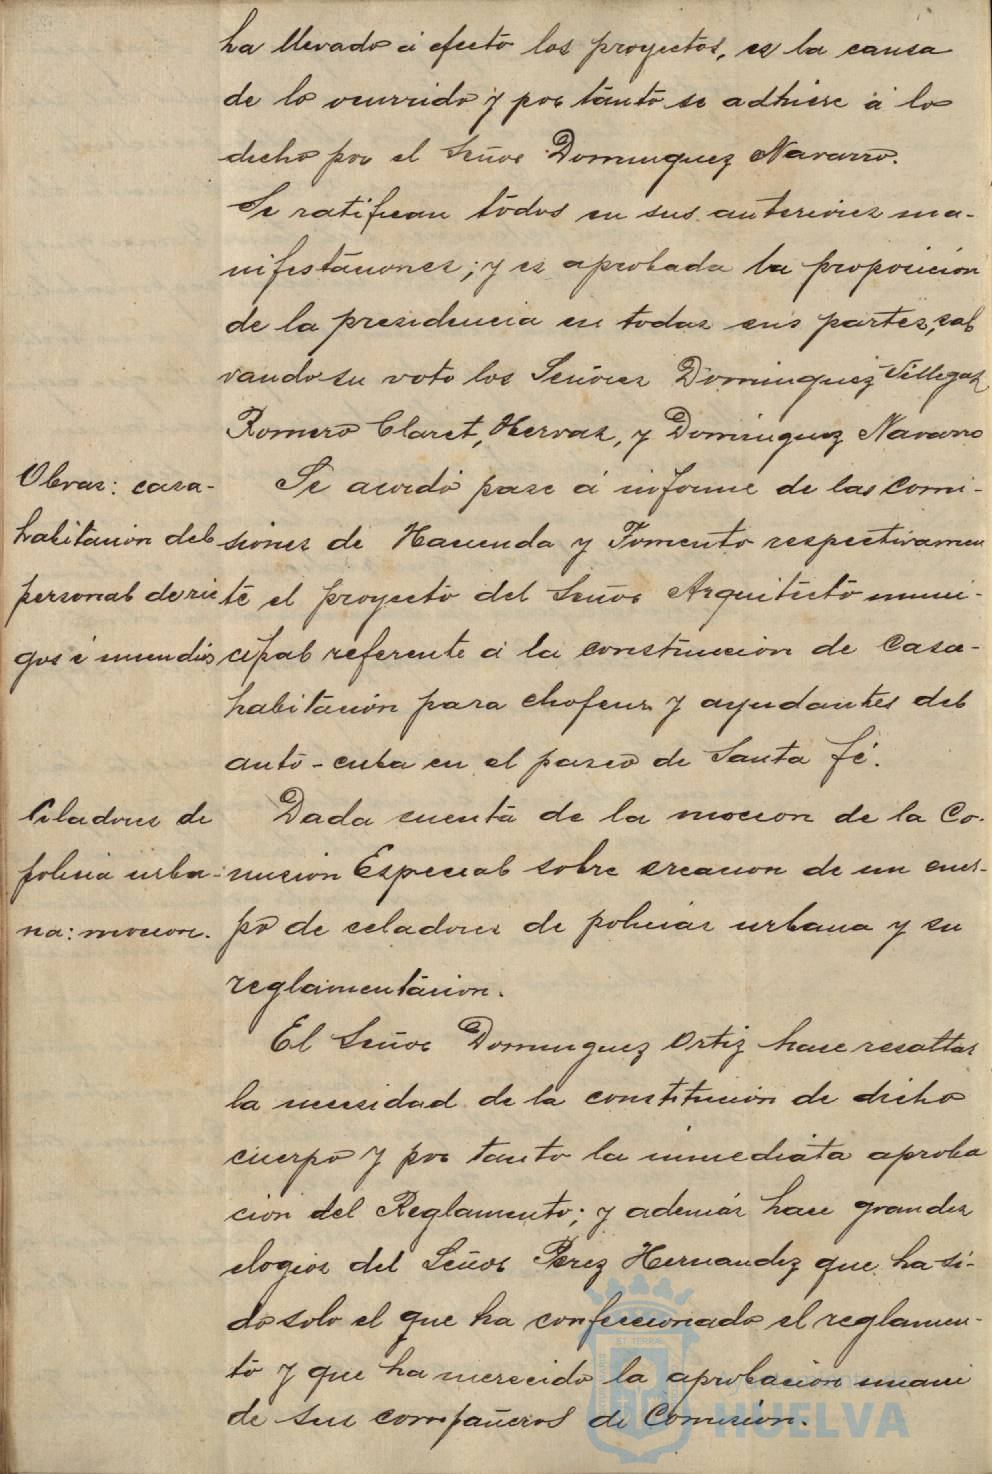 ha llevado á efecto los proyectos, es la causa
de lo ocurrido y por tánto se adhiere á lo
dicho por el Señor Dominguez Navarro.
Se ratifican tódos en sus anteriores ma-
nifestáciones; y es aprobada la proposicion
de la presidencia en todas sus partes, sal
vando su voto los Señores Dominguez Villegas
Romero Claret, Hervas, y Dominguez Navarro
Obras: casa-
habitación del
personal de rie
gos é incendios
Se acordó pase á informe de las comi-
siones de Hacienda y Fomento respectivamen
te el proyecto del Señor Arquitécto muni-
cipal referente á la construccion de Casa-
habitáción para chofeur y ayudantes del
autó-cuba en el paseo de Santa fé.
Celadores de
policia urba-
na: mocion.
Dada cuentá de la mocion de la Co-
mision Especial sobre creacion de un cuer-
po de celadores de policias urbana y su
reglamentácion.
El Señor Dominguez Ortiz hace resaltar
la necesidad de la constitución de dicho
cuerpo y por tanto la inmediata aproba
ción del Reglamento; y además hace grandes
elogios del Señor Perez Hernandez que ha si-
do solo el que ha confeccionado el reglamen-
tó y que ha merecido la aprobación unani
de sus compañeros de Comisión.
HUELVA